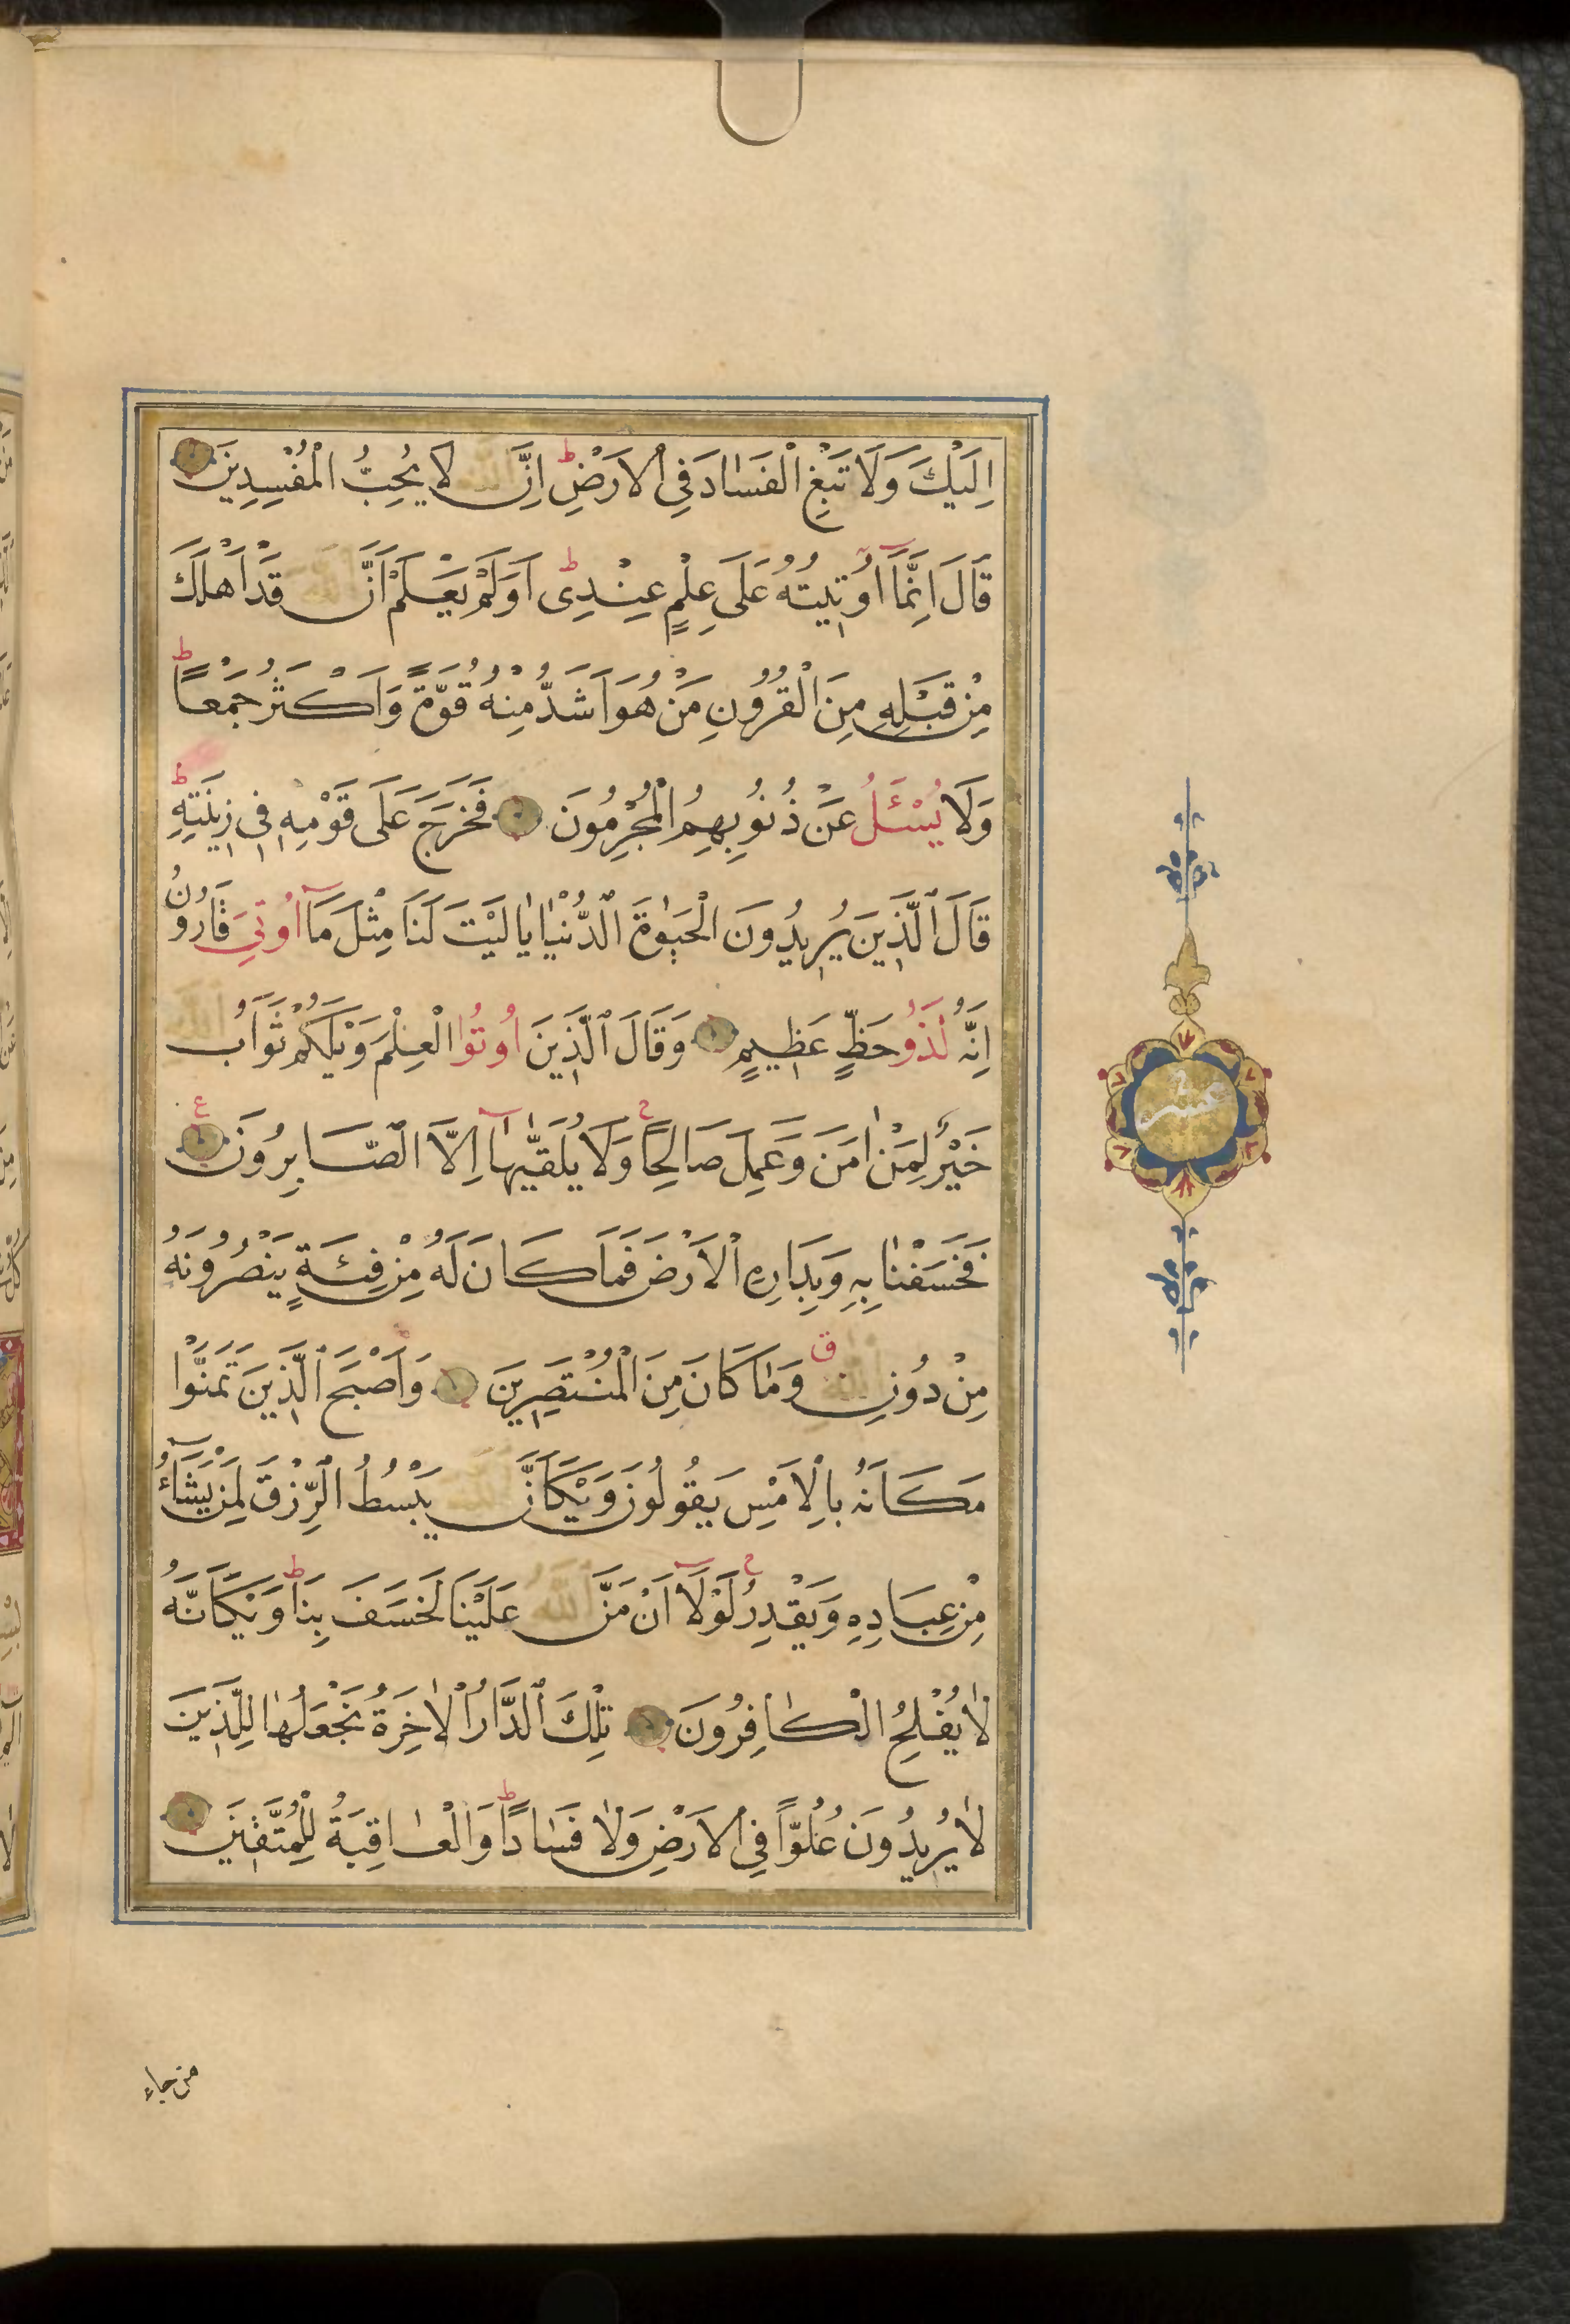 اِلَيْكَ وَلَا تَبْغِ الْفَسَادَ فِي الْاَرْضِ ط اِنَّ اللّٰهَ لَا يُحِبُّ الْمُفْسِدِينَ
قَالَ اِنَّمَٓا اُو۫تِيتُهُ عَلَى عِلْمٍ عِنْدِى ط اَوَلَمْ يَعْلَمْ اَنَّ اللّٰهَ قَدْ اَهْلَكَ
مِنْ قَبْلِهِ مِنَ الْقُرُونِ مَنْ هُوَ اَشَدُّ مِنْهُ قُوَّةً وَاَكْثَرُ جَمْعاً ط
وَلَا يُسْـَٔلُ عَنْ ذُنُوبِهِمُ الْمُجْرِمُونَ فَخَرَجَ عَلَى قَوْمِهِ فِى زِينَتِهِ ط
قَالَ الَّذِينَ يُرِيدُونَ الْحَيٰوةَ الدُّنْيَا يَا لَيْتَ لَنَا مِثْلَ مَٓا اُوتِيَ قَارُونُ
اِنَّهُ لَذُو حَظٍّ عَظِيمٍ وَقَالَ الَّذِينَ اُوتُوا الْعِلْمَ وَيْلَكُمْ ثَوَابُ اللّٰهِ
خَيْرٌ لِمَنْ اٰمَنَ وَعَمِلَ صَالِحًا ج وَلَا يُلَقّٰيهَٓا اِلَّا الصَّابِرُونَ ع
فَخَسَفْنَا بِهِ وَبِدَارِهِ الْاَرْضَ فَمَا كَانَ لَهُ مِنْ فِئَةٍ يَنْصُرُونَهُ
مِنْ دُونِ اللّٰهِ ق وَمَا كَانَ مِنَ الْمُنْتَصِرِينَ وَاَصْبَحَ الَّذِينَ تَمَنَّوْا
مَكَانَهُ بِالْاَمْسِ يَقُولُونَ وَيْكَاَنَّ اللّٰهَ يَبْسُطُ الرِّزْقَ لِمَنْ يَشَٓاءُ
مِنْ عِبَادِهِ وَيَقْدِرُ ج لَوْلَٓا اَنْ مَنَّ اللّٰهُ عَلَيْنَا لَخَسَفَ بِنَا ط وَيْكَاَنَّهُ
لَا يُفْلِحُ الْكَافِرُونَ تِلْكَ الدَّارُ الْاٰخِرَةُ نَجْعَلُهَا لِلَّذِينَ
لَا يُرِيدُونَ عُلُوّاً فِي الْاَرْضِ وَلَا فَسَادًا ط وَالْعَاقِبَةُ لِلْمُتَّقِينَ
عشر
من جاء